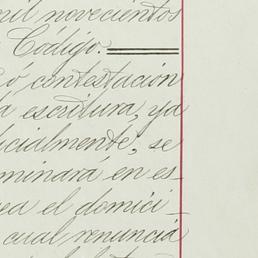 mil novecientos
Código.
ó contestación
a escritura, ya
icialmente, se
minará en es-
ea el domici-
cual renuncia